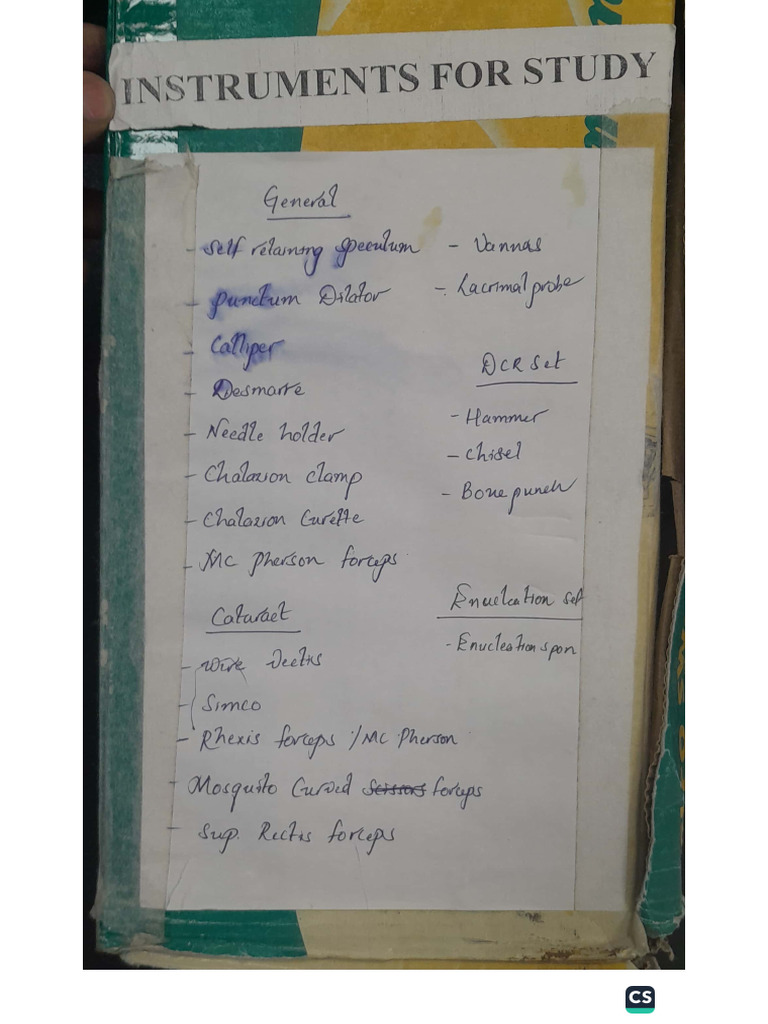 INSTRUMENTS FOR STUDY
General
- Self retaining Speculum
- Punctum Dilator
- Calliper
- Desmarre
- Needle holder
- Chalazion clamp
- Chalazion Curette
- Mc Pherson forceps
- Vannas
- Lacrimal probe
DCR Set
- Hammer
- Chisel
- Bone punch
Cataract
- Wire Vectis
- Simco
- Rhexis forceps / Mc Pherson
- Mosquito Curved Scissors forceps
- Sup. Rectus forceps
Enucleation set
- Enucleation spon
CS